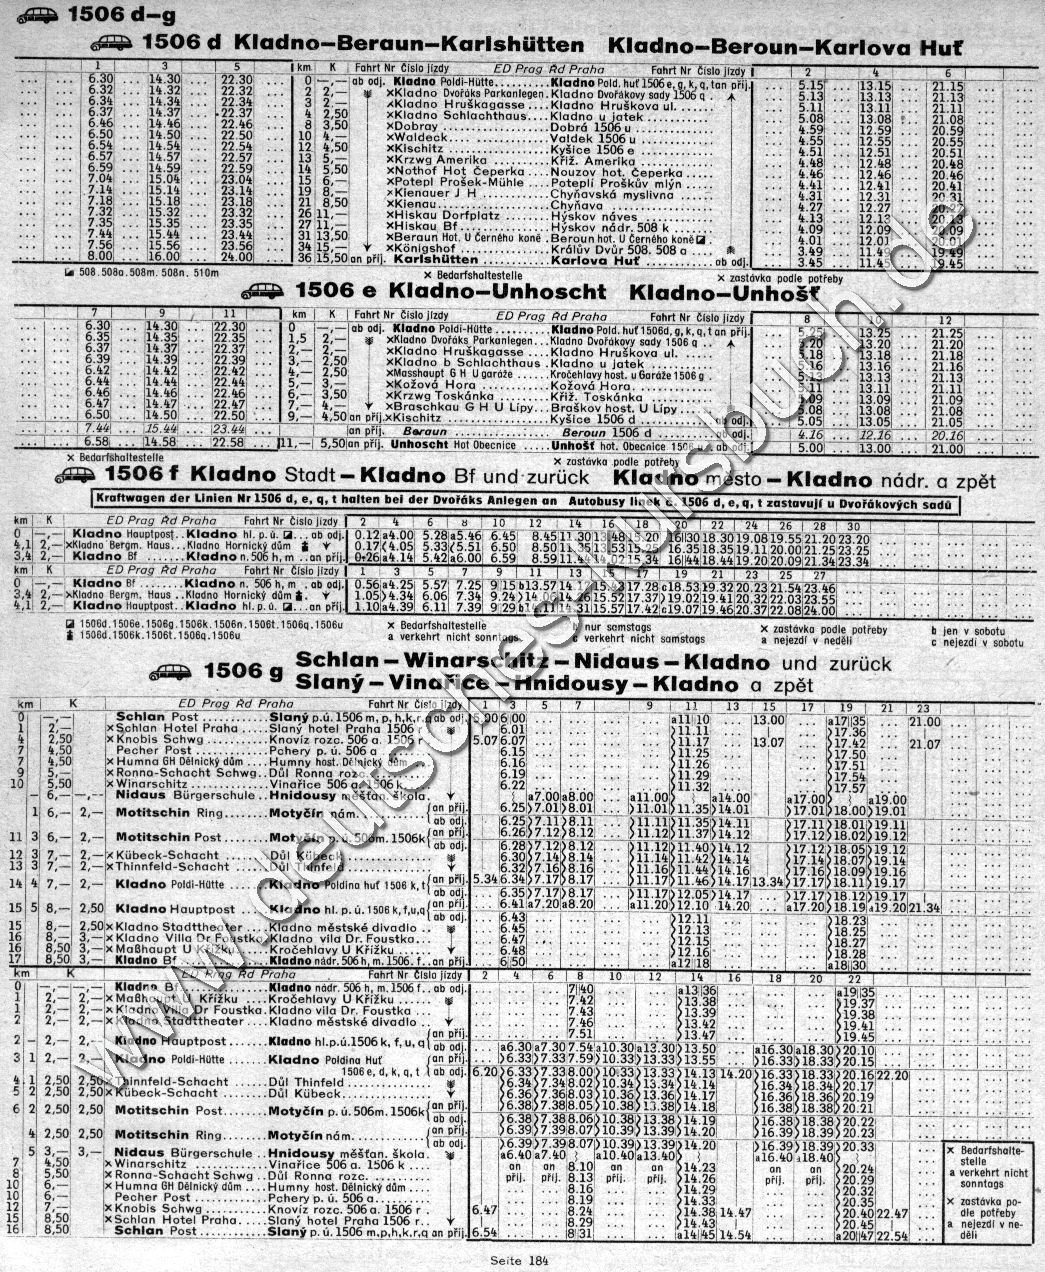 1506 d–g
1506 d Kladno–Beraun–Karlshütten Kladno–Beroun–Karlova Huť
1 3 5 km K Fahrt Nr Číslo jízdy ED Prag Řd Praha Fahrt Nr Číslo jízdy 2 4 6
6.30 14.30 22.30 0 –,– ab odj. Kladno Poldi-Hütte Kladno Pold. huť 1506 e, g, k, q, t an příj. 5.15 13.15 21.15
6.32 14.32 22.32 2 2,– ×Kladno Dvořáks Parkanlegen Kladno Dvořákovy sady 1506 q 5.13 13.13 21.13
6.34 14.34 22.34 3 2,– ×Kladno Hruškagasse Kladno Hruškova ul. 5.11 13.11 21.11
6.37 14.37 22.37 4 2,50 ×Kladno Schlachthaus Kladno u jatek 5.08 13.08 21.08
6.46 14.46 22.46 8 3,50 ×Dobray Dobrá 1506 u 4.59 12.59 20.59
6.50 14.50 22.50 10 4,– ×Waldeck Valdek 1506 u 4.55 12.55 20.55
6.54 14.54 22.54 12 4,50 ×Kischitz Kyšice 1506 e 4.51 12.51 20.51
6.57 14.57 22.57 13 5,– ×Krzwg Amerika Křiž. Amerika 4.48 12.48 20.48
6.59 14.59 22.59 14 5,50 ×Nothof Hot Čeperka Nouzov hot. Čeperka 4.46 12.46 20.46
7.04 15.04 23.04 15 6,– ×Potepl Prošek-Mühle Poteplí Proškův mlýn 4.41 12.41 20.41
7.14 15.14 23.14 19 8,– ×Kienauer J H Chyňavská myslivna 4.31 12.31 20.31
7.18 15.18 23.18 21 8,50 Kienau Chyňava 4.27 12.27
7.32 15.32 23.32 26 11,– ×Hiskau Dorfplatz Hýskov náves 4.13 12.13
7.35 15.35 23.35 27 11,– ×Hiskau Bf Hýskov nádr. 508 k 4.09 12.09
7.44 15.44 23.44 31 13,50 ×Beraun Hot. U Černého koně Beroun hot. U Černého koně 4.01 12.01 20.01
7.56 15.56 23.56 34 15,– ×Königshof Králův Dvůr 508 a 3.49 11.49 19.49
8.00 16.00 24.00 36 15,50 an příj. Karlshütten Karlova Huť ab odj. 3.45 11.45 19.45
508. 508a. 508m. 508n. 510m × Bedarfshaltestelle × zastávka podle potřeby
1506 e Kladno–Unhoscht Kladno–Unhošť
7 9 11 km K Fahrt Nr Číslo jízdy ED Prag Řd Praha Fahrt Nr Číslo jízdy 8 10 12
6.30 14.30 22.30 0 –,– ab odj. Kladno Poldi-Hütte Kladno Pold. huť 1506d, g, k, q, t an příj. 5.25 13.25 21.25
6.35 14.35 22.35 1,5 2,– ×Kladno Dvořáks Parkanlegen Kladno Dvořákovy sady 1506 q 5.20 13.20 21.20
6.37 14.37 22.37 2,– 2,– ×Kladno Hruškagasse Kladno Hruškova ul. 5.18 13.18 21.18
6.39 14.39 22.39 3,– 2,50 ×Kladno b Schlachthaus Kladno u jatek 5.16 13.16 21.16
6.42 14.42 22.42 4,– 2,50 ×Masshaupt G H U garáže Kročehlavy host. u Garáže 1506 g 5.13 13.13 21.13
6.44 14.44 22.44 5,– 3,– ×Kožová Hora Kožová Hora 5.11 13.11 21.11
6.46 14.46 22.46 6,– 3,50 ×Krzwg Toskánka Křiž. Toskánka 5.09 13.09 21.09
6.47 14.47 22.47 7,– 4,– ×Braschkau G H U Lípy Braškov host. U Lípy 5.08 13.08 21.08
6.50 14.50 22.50 9,– 4,50 an příj. ×Kischitz Kyšice 1506 d ab odj. 5.05 13.05 21.05
7.44 15.44 23.44 an příj. Beraun Beroun 1506 d ab odj. 4.16 12.16 20.16
6.58 14.58 22.58 11,– 5,50 an příj. Unhoscht Hot Obecnice Unhošť hot. Obecnice 1506 u ab odj. 5.00 13.00 21.00
× Bedarfshaltestelle × zastávka podle potřeby
1506 f Kladno Stadt – Kladno Bf und zurück Kladno město – Kladno nádr. a zpět
Kraftwagen der Linien Nr 1506 d, e, q, t halten bei der Dvořáks Anlegen an Autobusy linek č. 1506 d, e, q, t zastavují u Dvořákových sadů
km K ED Prag Řd Praha Fahrt Nr Číslo jízdy 2 4 6 8 10 12 14 16 18 20 22 24 26 28 30
0 –,– Kladno Hauptpost Kladno hl. p. ú. ab odj. 0.12 a4.00 5.28 a5.46 6.45 8.45 11.30 13.48 15.20 16|30 18.30 19.08 19.55 21.20 23.20
4,1 2,– ×Kladno Bergm. Haus Kladno Hornický dům 0.17 4.05 5.33 5.51 6.50 8.50 11.35 13.53 15.25 16.35 18.35 19.11 20.00 21.25 23.25
3,4 2,– Kladno Bf Kladno n. 506 h, m an příj. 0.26 a4.14 5.42 a6.00 6.59 8.59 11.44 14.02 15.34 16|44 18.44 19.20 20.09 21.34 23.34
km K ED Prag Řd Praha Fahrt Nr Číslo jízdy 1 3 5 7 9 11 13 15 17 19 21 23 25 27
0 –,– Kladno Bf Kladno n. 506 h, m ab odj. 0.56 a4.25 5.57 7.25 9|15 b13.57 14.17 15.43 17.28 c18.53 19.32 20.23 21.54 23.46
3,4 2,– ×Kladno Bergm. Haus Kladno Hornický dům 1.05 4.34 6.06 7.34 9.24 14.06 14.26 15.52 17.37 19.02 19.41 20.32 22.03 23.55
4,1 2,– Kladno Hauptpost Kladno hl. p. ú. an příj. 1.10 a4.39 6.11 7.39 9|29 b14.11 14.31 15.57 17.42 c19.07 19.46 20.37 22.08 24.00
1506d. 1506e. 1506g. 1506k. 1506n. 1506t. 1506q. 1506u × Bedarfshaltestelle b nur samstags × zastávka podle potřeby b jen v sobotu
1506d. 1506k. 1506t. 1506q. 1506u a verkehrt nicht sonntags c verkehrt nicht samstags a nejezdí v neděli c nejezdí v sobotu
1506 g Schlan – Winarschitz – Nidaus – Kladno und zurück
Slaný – Vinařice – Hnidousy – Kladno a zpět
km K ED Prag Řd Praha Fahrt Nr Číslo jízdy 1 3 5 7 9 11 13 15 17 19 21 23
0 –,– Schlan Post Slaný p. ú. 1506 m, p, h, k, r, q ab odj. 5.00 6|00 a11|10 13.00 a17|35 21.00
1 2,– ×Schlan Hotel Praha Slaný hotel Praha 1506 r 6.01 11.11 17.36
4 2,50 ×Knobis Schwg Knovíz rozc. 506 a, 1505 r 5.07 6.07 11.17 13.07 17.42 21.07
7 4,50 Pecher Post Pchery p. ú. 506 a 6.15 11.25 17.50
7 4,50 ×Humna GH Dělnický dům Humny host. Dělnický dům 6.16 11.26 17.51
9 5,– ×Ronna-Schacht Schwg Důl Ronna rozc. 6.19 11.29 17.54
10 5,50 ×Winarschitz Vinařice 506 a, 1506 k 6.22 11.32 17.57
– 6,– –,– Nidaus Bürgerschule Hnidousy měšťan. škola a7.00 a8.00 a11.00 a14.00 a17.00 a19.00
1 6,– 2,– Motitschin Ring Motyčín nám. an příj. 6.25 7.01 8.01 11.01 11.35 14.01 17.01 18.00 19.01
ab odj. 6.25 7.11 8.11 11.11 11.35 14.11 17.11 18.01 19.11
11 3 6,– 2,– Motitschin Post Motyčín p. ú. 506m. 1506k an příj. 6.26 7.12 8.12 11.12 11.37 14.12 17.12 18.02 19.12
ab odj. 6.28 7.12 8.12 11.12 11.40 14.12 17.12 18.05 19.12
12 3 7,– 2,– ×Kübeck-Schacht Důl Kübeck 6.30 7.14 8.14 11.14 11.42 14.14 17.14 18.07 19.14
13 3 7,– 2,– ×Thinnfeld-Schacht Důl Thinfeld 6.32 7.16 8.16 11.16 11.44 14.16 17.16 18.09 19.16
14 4 7,– 2,– Kladno Poldi-Hütte Kladno Poldina huť 1506 k, t an příj. 5.34 6.34 7.17 8.17 11.17 11.46 14.17 13.34 17.17 18.11 19.17
ab odj. 6.35 7.17 8.17 11.17 12.05 14.17 17.17 18.12 19.17
15 5 8,– 2,50 Kladno Hauptpost Kladno hl. p. ú. 1506 k, f, u, q an příj. 6.41 a7.20 a8.20 a11.20 12.10 14.20 a17.20 18.19 a19.20 21.34
ab odj. 6.43 12.11 18.23
15 8,– 2,50 ×Kladno Stadttheater Kladno městské divadlo 6.45 12.13 18.25
16 8,– 3,– ×Kladno Villa Dr Foustka Kladno vila Dr. Foustka 6.47 12.15 18.27
16 8,50 3,– ×Maßhaupt U Křížku Kročehlavy U Křížku 6.48 12.16 18.28
17 8,50 3,– Kladno Bf Kladno nádr. 506 h, m. 1506 f an příj. 6|50 a12|18 a18|30
km K ED Prag Řd Praha Fahrt Nr Číslo jízdy 2 4 6 8 10 12 14 16 18 20 22
0 –,– Kladno Bf Kladno nádr. 506 h, m. 1506 f ab odj. 7|40 a13|36 a19|35
1 2,– 2,– ×Maßhaupt U Křížku Kročehlavy U Křížku 7.42 13.38 19.37
1 2,– 2,– ×Kladno Villa Dr Foustka Kladno vila Dr. Foustka 7.43 13.39 19.38
2 2,– 2,– ×Kladno Stadttheater Kladno městské divadlo 7.46 13.42 19.41
2 – 2,– 2,– Kladno Hauptpost Kladno hl. p. ú. 1506 k, f, u, q an příj. 7.51 13.47 19.45
ab odj. a6.30 a7.30 7.54 a10.30 a13.30 13.50 a16.30 a18.30 20.10
3 1 2,– 2,– Kladno Poldi-Hütte Kladno Poldina Huť an příj. 6.33 7.33 7.59 10.33 13.33 13.55 16.33 18.33 20.15
1506 e, d, k, q, t ab odj. 6.20 6.33 7.33 8.00 10.33 13.33 14.13 14.20 16.33 18.33 20.16 22.20
4 1 2,50 2,50 ×Thinnfeld-Schacht Důl Thinfeld 6.34 7.34 8.02 10.34 13.34 14.14 16.34 18.34 20.17
5 2 2,50 2,50 ×Kübeck-Schacht Důl Kübeck 6.36 7.36 8.03 10.36 13.36 14.17 16.36 18.36 20.19
6 2 2,50 2,50 Motitschin Post Motyčín p. ú. 506m. 1506k an příj. 6.38 7.38 8.05 10.38 13.38 14.18 16.38 18.38 20.21
ab odj. 6.38 7.38 8.06 10.38 13.38 14.19 16.38 18.38 20.22
4 2,50 2,50 Motitschin Ring Motyčín nám. an příj. 6.39 7.39 8.07 10.39 13.39 14.20 16.39 18.39 20.23
ab odj. 6.39 7.39 8.07 10.39 13.39 14.20 16.39 18.39 20.33
5 3,– 3,– Nidaus Bürgerschule Hnidousy měšťan. škola a6.40 a7.40 a10.40 a13.40 a16.40 a18.40
7 4,50 ×Winarschitz Vinařice 506 a. 1506 k an an 8.10 an an 14.23 an an 20.24
8 5,50 ×Ronna-Schacht Schwg Důl Ronna rozc. příj. příj. 8.13 příj. příj. 14.26 příj. příj. 20.29
10 6,– ×Humna GH Dělnický dům Humny host. Dělnický dům 8.16 14.29 20.32
10 6,– Pecher Post Pchery p. ú. 506 a 8.19 14.33 20.35
12 7,– ×Knobis Schwg Knovíz rozc. 506 a. 1506 r 6.47 8.24 14.38 14.47 20.40 22.47
15 8,50 ×Schlan Hotel Praha Slaný hotel Praha 1506 r 8.29 14.43 20.45
16 8,50 Schlan Post Slaný p. ú. 1506 m, p, h, k, r, q an příj. 6.54 8|31 a14|45 14.54 a20|47 22.54
× Bedarfshalte-
stelle
a verkehrt nicht
sonntags
× zastávka po-
dle potřeby
a nejezdí v ne-
děli
Seite 184
www.deutsches-kursbuch.de